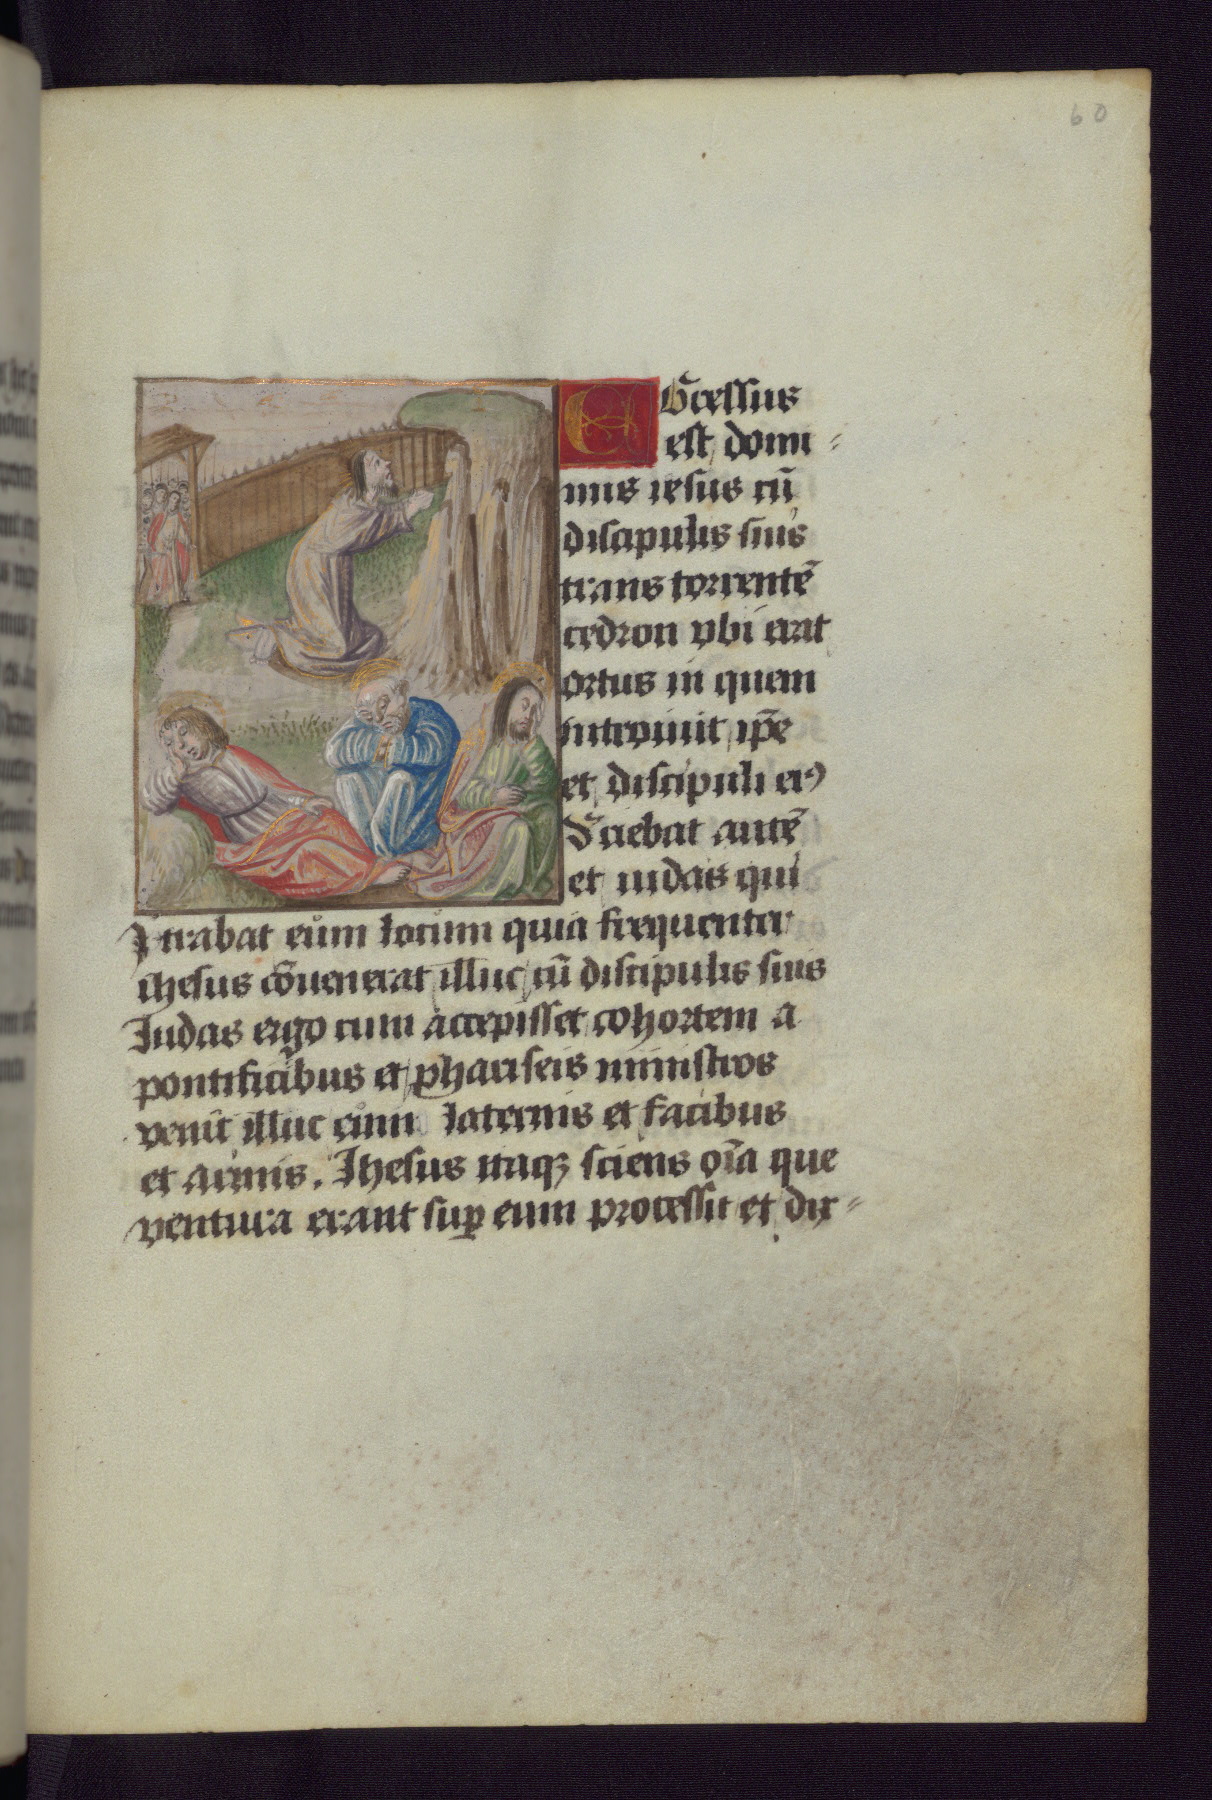 60
Egressus
est domi-
nus iesus cū
discipulis suis
trans torrentē
cedron vbi erat
ortus in quem
introiuit ip̄e
et discipuli eiꝰ
Sciebat autē
et iudas qui
trabat eum locum quia frequenter
Ihesus cōuenerat illuc cū discipulis suis
Iudas ergo cum accepisset cohortem a
pontificibus et phariseis ministros
venit illuc cum laternis et facibus
et armis. Ihesus itaqꝫ sciens oīa que
ventura erant suꝑ eum processit et dix-